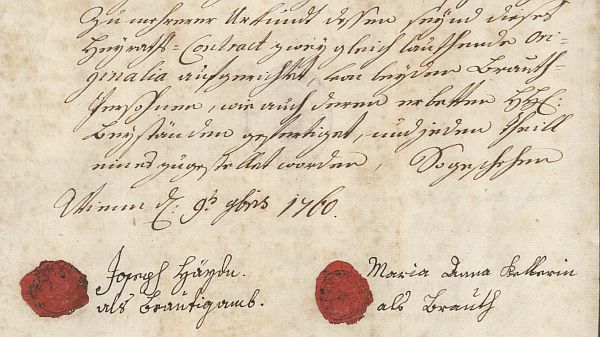 Zu mehrerer Urkundt dessen seynd dieses
Heyraths-Contract zwey gleich lauthende Ori-
ginalia aufgerichtet, von beyden Brauth-
Persohnen, wie auch deren erbettenen HH:
Beyständen gefertiget, und jeden Theill
eines zugestellet worden, So geschehen
Wienn d: 9t 9bris 1760.
Joseph Haÿdn. Maria Anna Kellerin
als Breutigamb. als Brauth